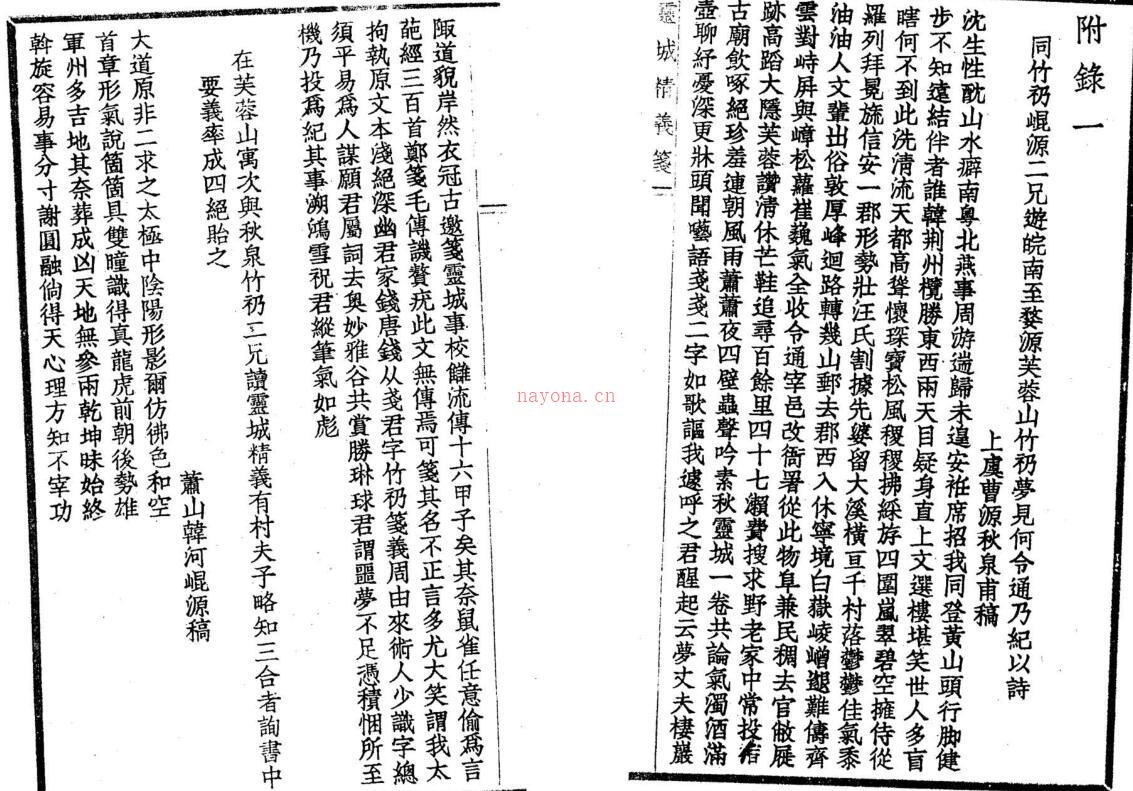 附錄一
同竹礽崐源二兄遊皖南至婺源芙蓉山竹礽夢見何令通乃紀以詩
上虞曹源秋泉甫稿
沈生性酖山水癖南粵北燕事周游遄歸未遑安袵席招我同登黃山頭行脚健
步不知遠結伴者誰韓荆州欖勝東西兩天目疑身直上文選樓堪笑世人多盲
瞎何不到此洗清流天都高聳懷琛寶松風稷稷拂綵斿四圍嵐翠碧空擁侍從
羅列拜冕旒信安一郡形勢壯汪氏割據先婺留大溪橫亘千村落鬱鬱佳氣黍
油油人文輩出俗敦厚峰迴路轉幾山郵去郡西入休寧境白嶽崚嶒邈難儔齊
雲對峙屏與嶂松蘿崔巍氣全收令通宰邑改衙署從此物阜兼民稠去官敝屣
跡高蹈大隱芙蓉讚清休芒鞋追尋百餘里四十七瀨費搜求野老家中常投宿
古廟飲啄絕珍羞連朝風雨蕭蕭夜四壁蟲聲吟素秋靈城一卷共論氣濁酒滿
壺聊紓憂深更牀頭聞囈語戔戔二字如歌謳我遽呼之君醒起云夢丈夫棲巖
靈城精義箋
一
陬道貌岸然衣冠古邀箋靈城事校讎流傳十六甲子矣其奈鼠雀任意偷爲言
葩經三百首鄭箋毛傳譏贅疣此文無傳焉可箋其名不正言多尤大笑謂我太
拘執原文本淺絕深幽君家錢唐錢从戔君字竹礽箋義周由來術人少識字總
須平易爲人謀願君屬詞去奥妙雅谷共賞勝琳球君謂噩夢不足憑積悃所至
機乃投爲紀其事溯鴻雪祝君縱筆氣如彪
在芙蓉山寓次與秋泉竹礽二兄讀靈城精義有村夫子略知三合者詢書中
要義率成四絕貽之
蕭山韓河崐源稿
大道原非二求之太極中陰陽形影爾仿彿色和空
首章形氣說箇箇具雙瞳識得真龍虎前朝後勢雄
軍州多吉地其奈葬成凶天地無參兩乾坤昧始終
斡旋容易事分寸謝圓融倘得天心理方知不宰功
nayona.cn